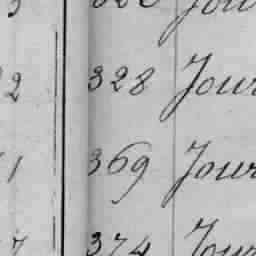 2 328 Jour
1 369 Jour
7 374 Jour